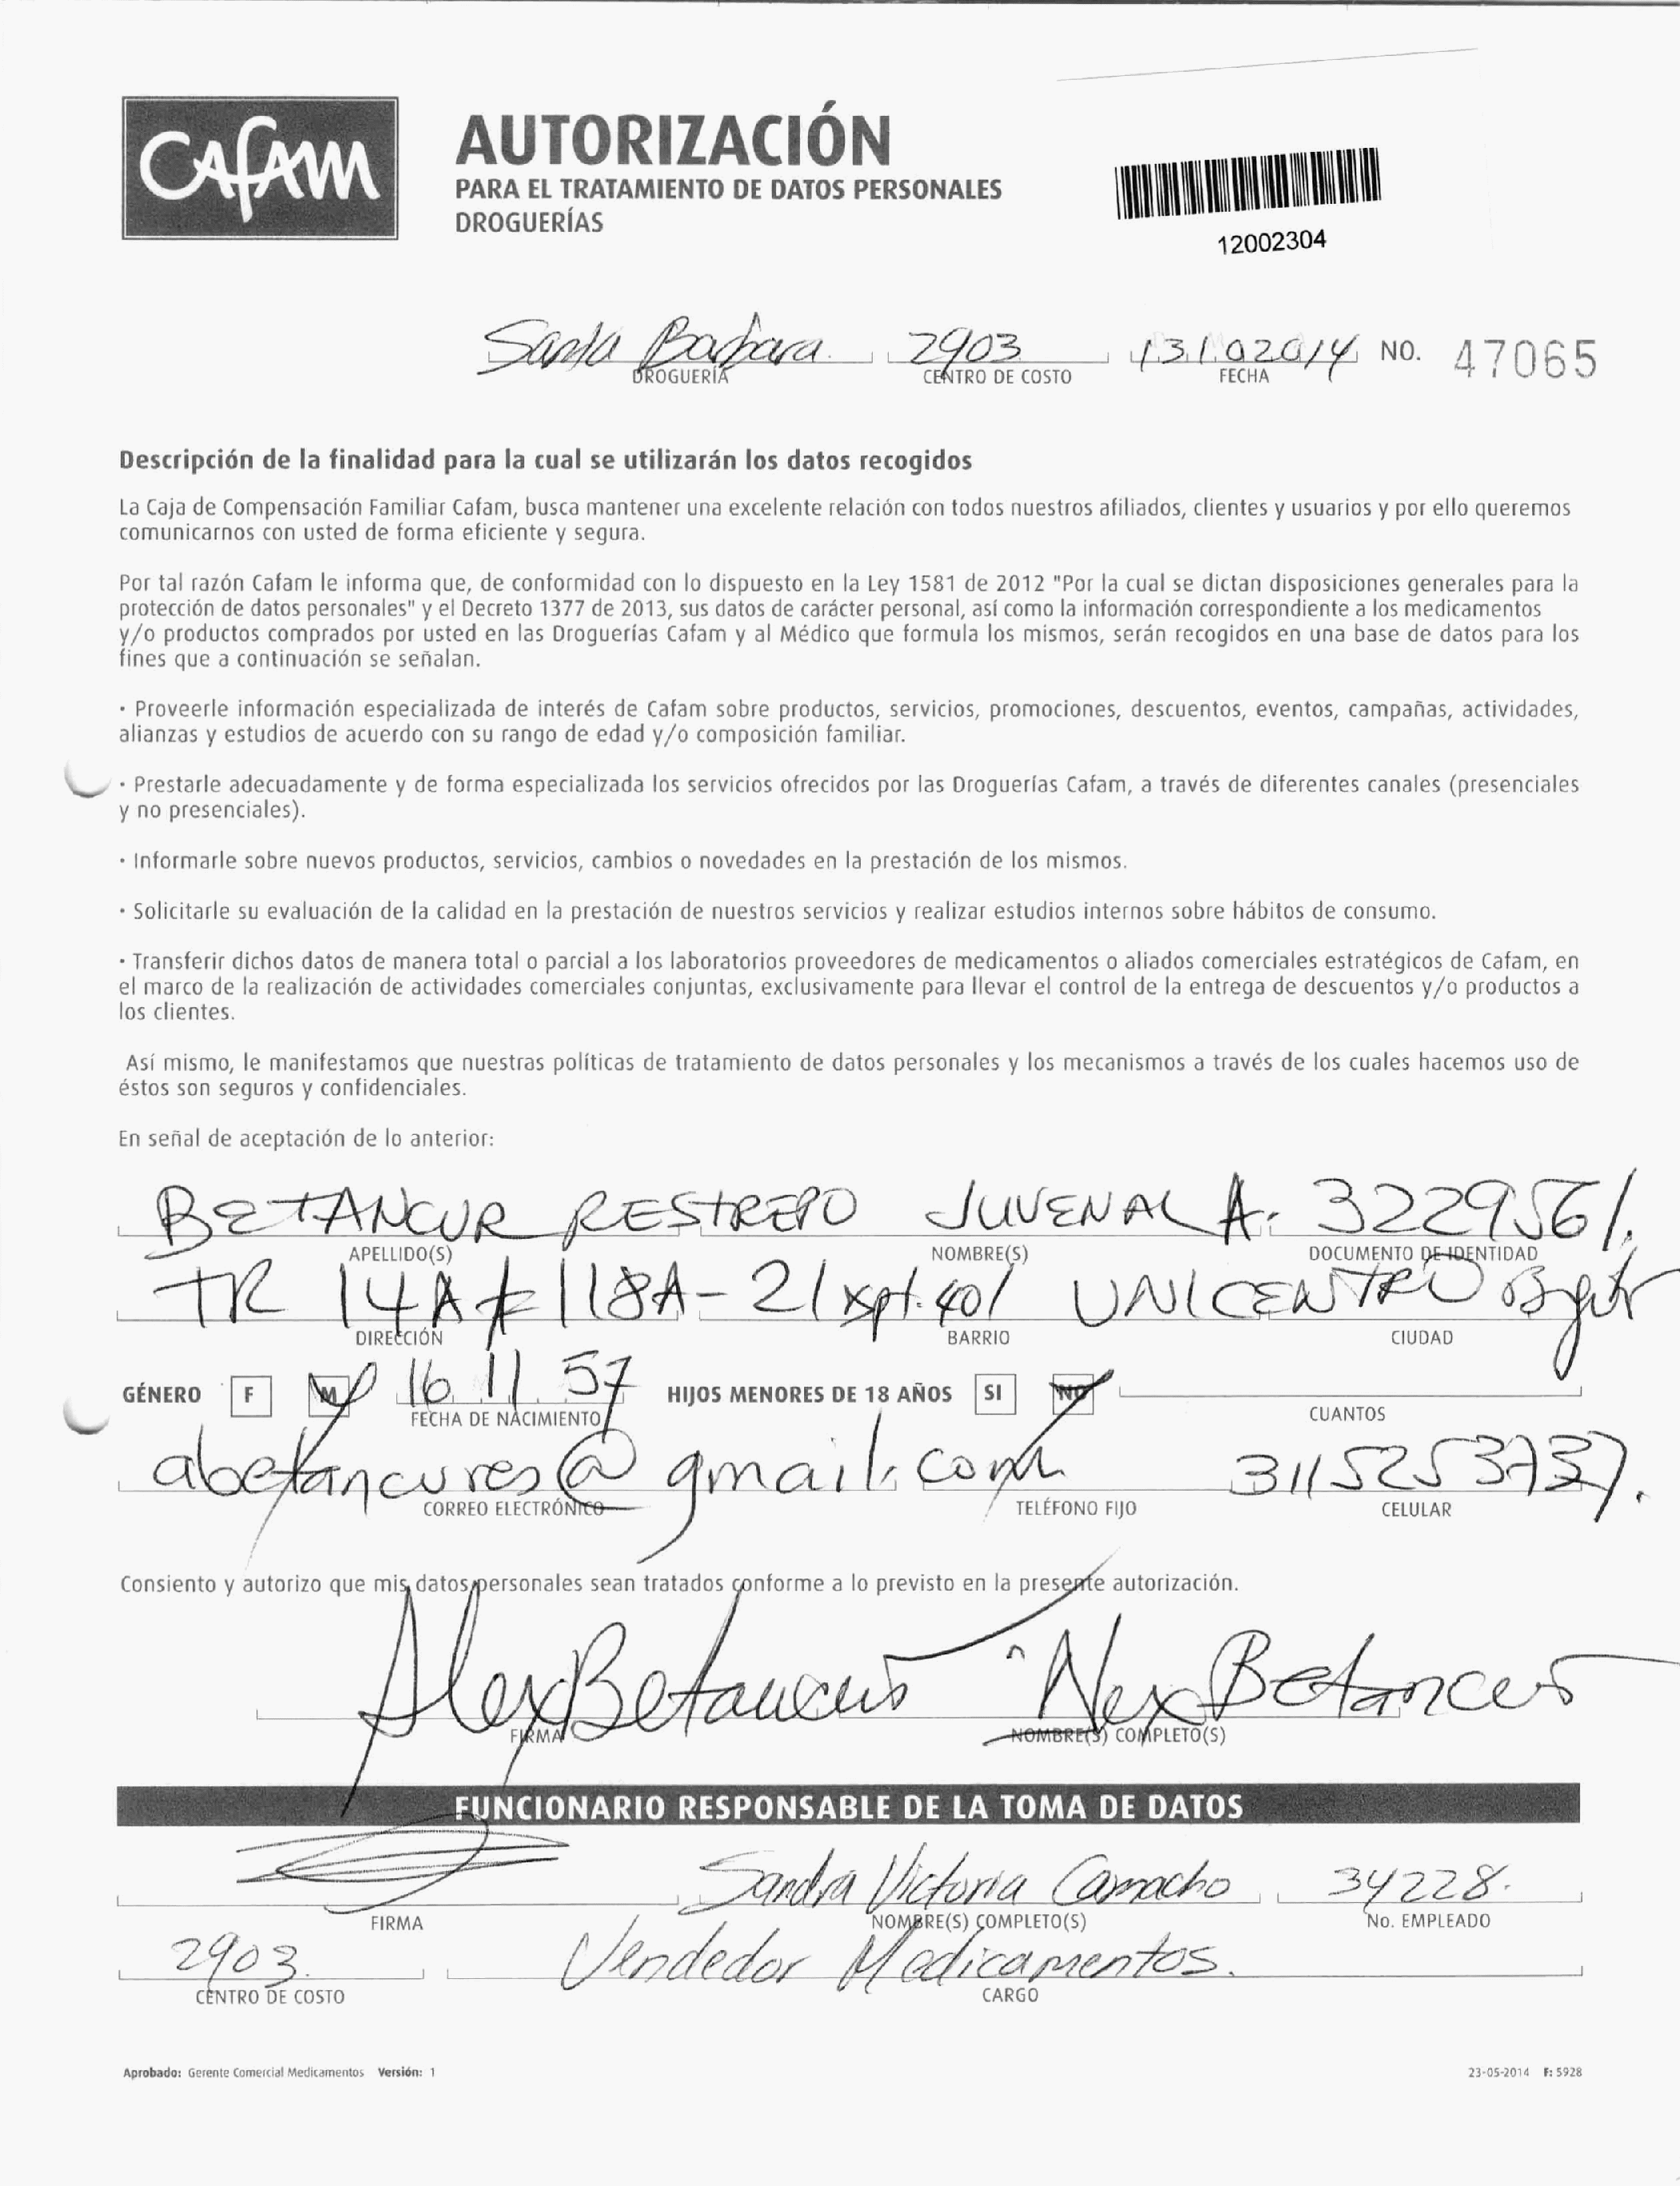 CAFAM
AUTORIZACIÓN
PARA EL TRATAMIENTO DE DATOS PERSONALES
DROGUERÍAS
12002304
Santa Barbara 2903 13102014 NO. 47065
DROGUERÍA CENTRO DE COSTO FECHA
Descripción de la finalidad para la cual se utilizarán los datos recogidos
La Caja de Compensación Familiar Cafam, busca mantener una excelente relación con todos nuestros afiliados, clientes y usuarios y por ello queremos
comunicarnos con usted de forma eficiente y segura.
Por tal razón Cafam le informa que, de conformidad con lo dispuesto en la Ley 1581 de 2012 "Por la cual se dictan disposiciones generales para la
protección de datos personales" y el Decreto 1377 de 2013, sus datos de carácter personal, así como la información correspondiente a los medicamentos
y/o productos comprados por usted en las Droguerías Cafam y al Médico que formula los mismos, serán recogidos en una base de datos para los
fines que a continuación se señalan.
• Proveerle información especializada de interés de Cafam sobre productos, servicios, promociones, descuentos, eventos, campañas, actividades,
alianzas y estudios de acuerdo con su rango de edad y/o composición familiar.
• Prestarle adecuadamente y de forma especializada los servicios ofrecidos por las Droguerías Cafam, a través de diferentes canales (presenciales
y no presenciales).
• Informarle sobre nuevos productos, servicios, cambios o novedades en la prestación de los mismos.
• Solicitarle su evaluación de la calidad en la prestación de nuestros servicios y realizar estudios internos sobre hábitos de consumo.
• Transferir dichos datos de manera total o parcial a los laboratorios proveedores de medicamentos o aliados comerciales estratégicos de Cafam, en
el marco de la realización de actividades comerciales conjuntas, exclusivamente para llevar el control de la entrega de descuentos y/o productos a
los clientes.
Así mismo, le manifestamos que nuestras políticas de tratamiento de datos personales y los mecanismos a través de los cuales hacemos uso de
éstos son seguros y confidenciales.
En señal de aceptación de lo anterior:
BETANCUR RESTREPO JUVENAL A. 3229561.
APELLIDO(S) NOMBRE(S) DOCUMENTO DE IDENTIDAD
TR 14A # 118A-21 apt. 401 UNICENTRO
DIRECCIÓN BARRIO CIUDAD
GÉNERO F M 16 11 57 HIJOS MENORES DE 18 AÑOS SI NO
FECHA DE NACIMIENTO CUANTOS
abetancures@gmail.com 3115253737.
CORREO ELECTRÓNICO TELÉFONO FIJO CELULAR
Consiento y autorizo que mis datos personales sean tratados conforme a lo previsto en la presente autorización.
Alex Betancur Alex Betancur
FIRMA NOMBRE(S) COMPLETO(S)
FUNCIONARIO RESPONSABLE DE LA TOMA DE DATOS
Sandra Victoria Camacho 34228.
FIRMA NOMBRE(S) COMPLETO(S) No. EMPLEADO
2903. Vendedor Medicamentos.
CENTRO DE COSTO CARGO
Aprobado: Gerente Comercial Medicamentos Versión: 1 23-05-2014 F: 5928